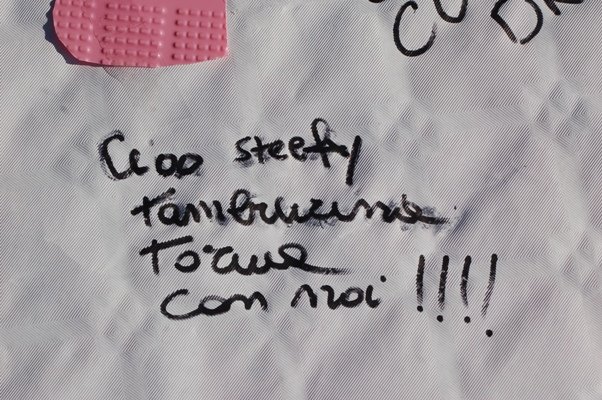 Ciao steefy
tamburina
Torna
con noi !!!!